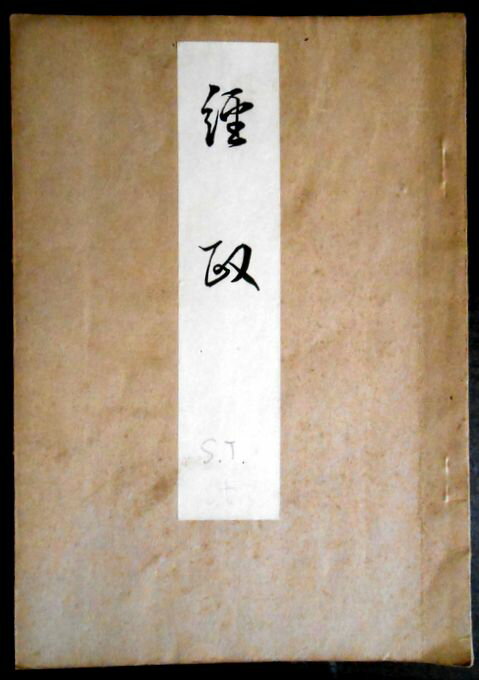 經政
S.T.